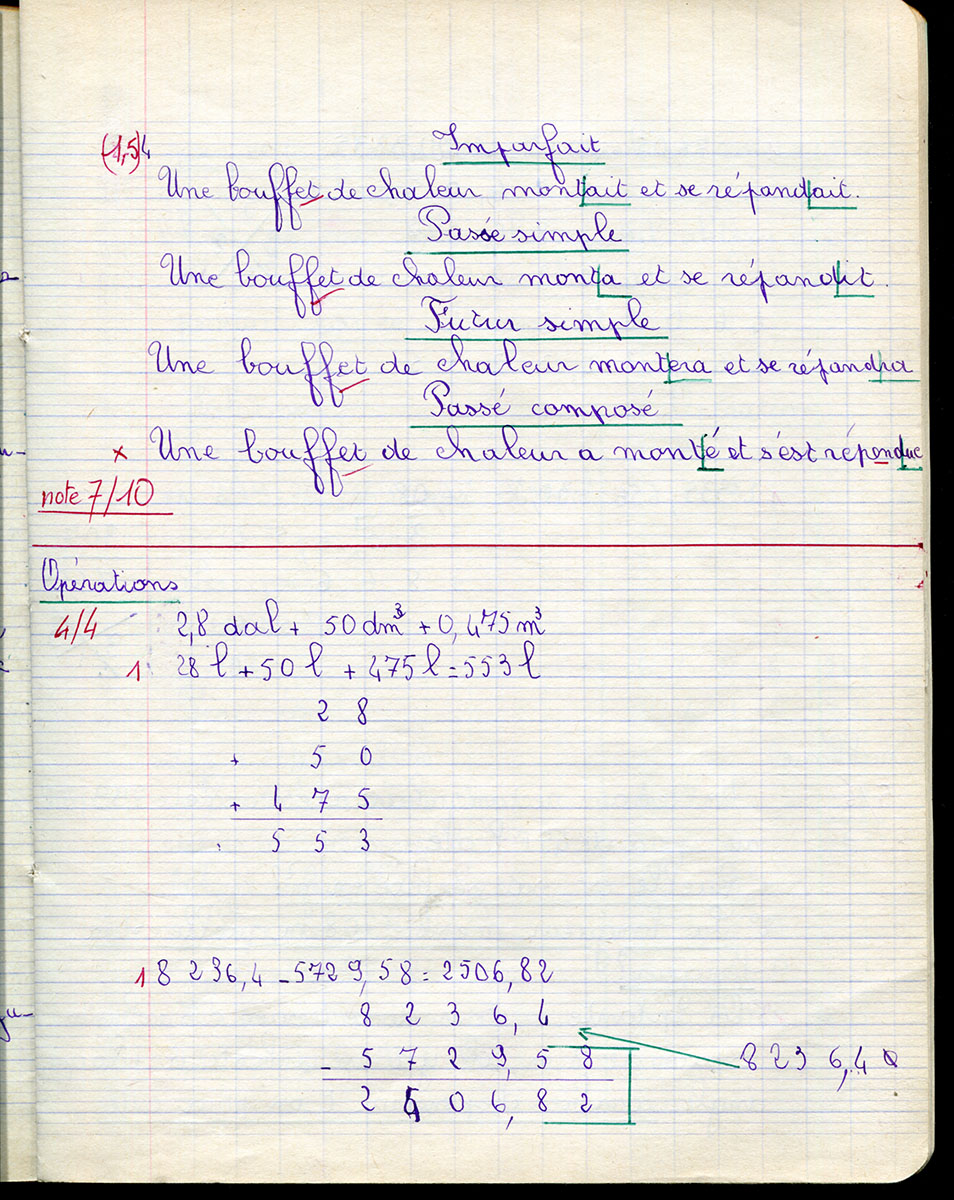 (1,5)4
Imparfait
Une bouffet de chaleur montait et se répandait.
Passé simple
Une bouffet de chaleur monta et se répandit.
Futur simple
Une bouffet de chaleur montera et se répandra
Passé composé
x Une bouffet de chaleur a monté et s'est répondue
note 7/10
Opérations
4/4 2,8 dal + 50 dm³ + 0,475 m³
1 28 l + 50 l + 475 l = 553 l
2 8
+ 5 0
+ 4 7 5
5 5 3
1 8 236,4 - 5729,58 = 2506,82
8 2 3 6, 4
- 5 7 2 9, 5 8 8 2 3 6, 4 0
2 5 0 6, 8 2